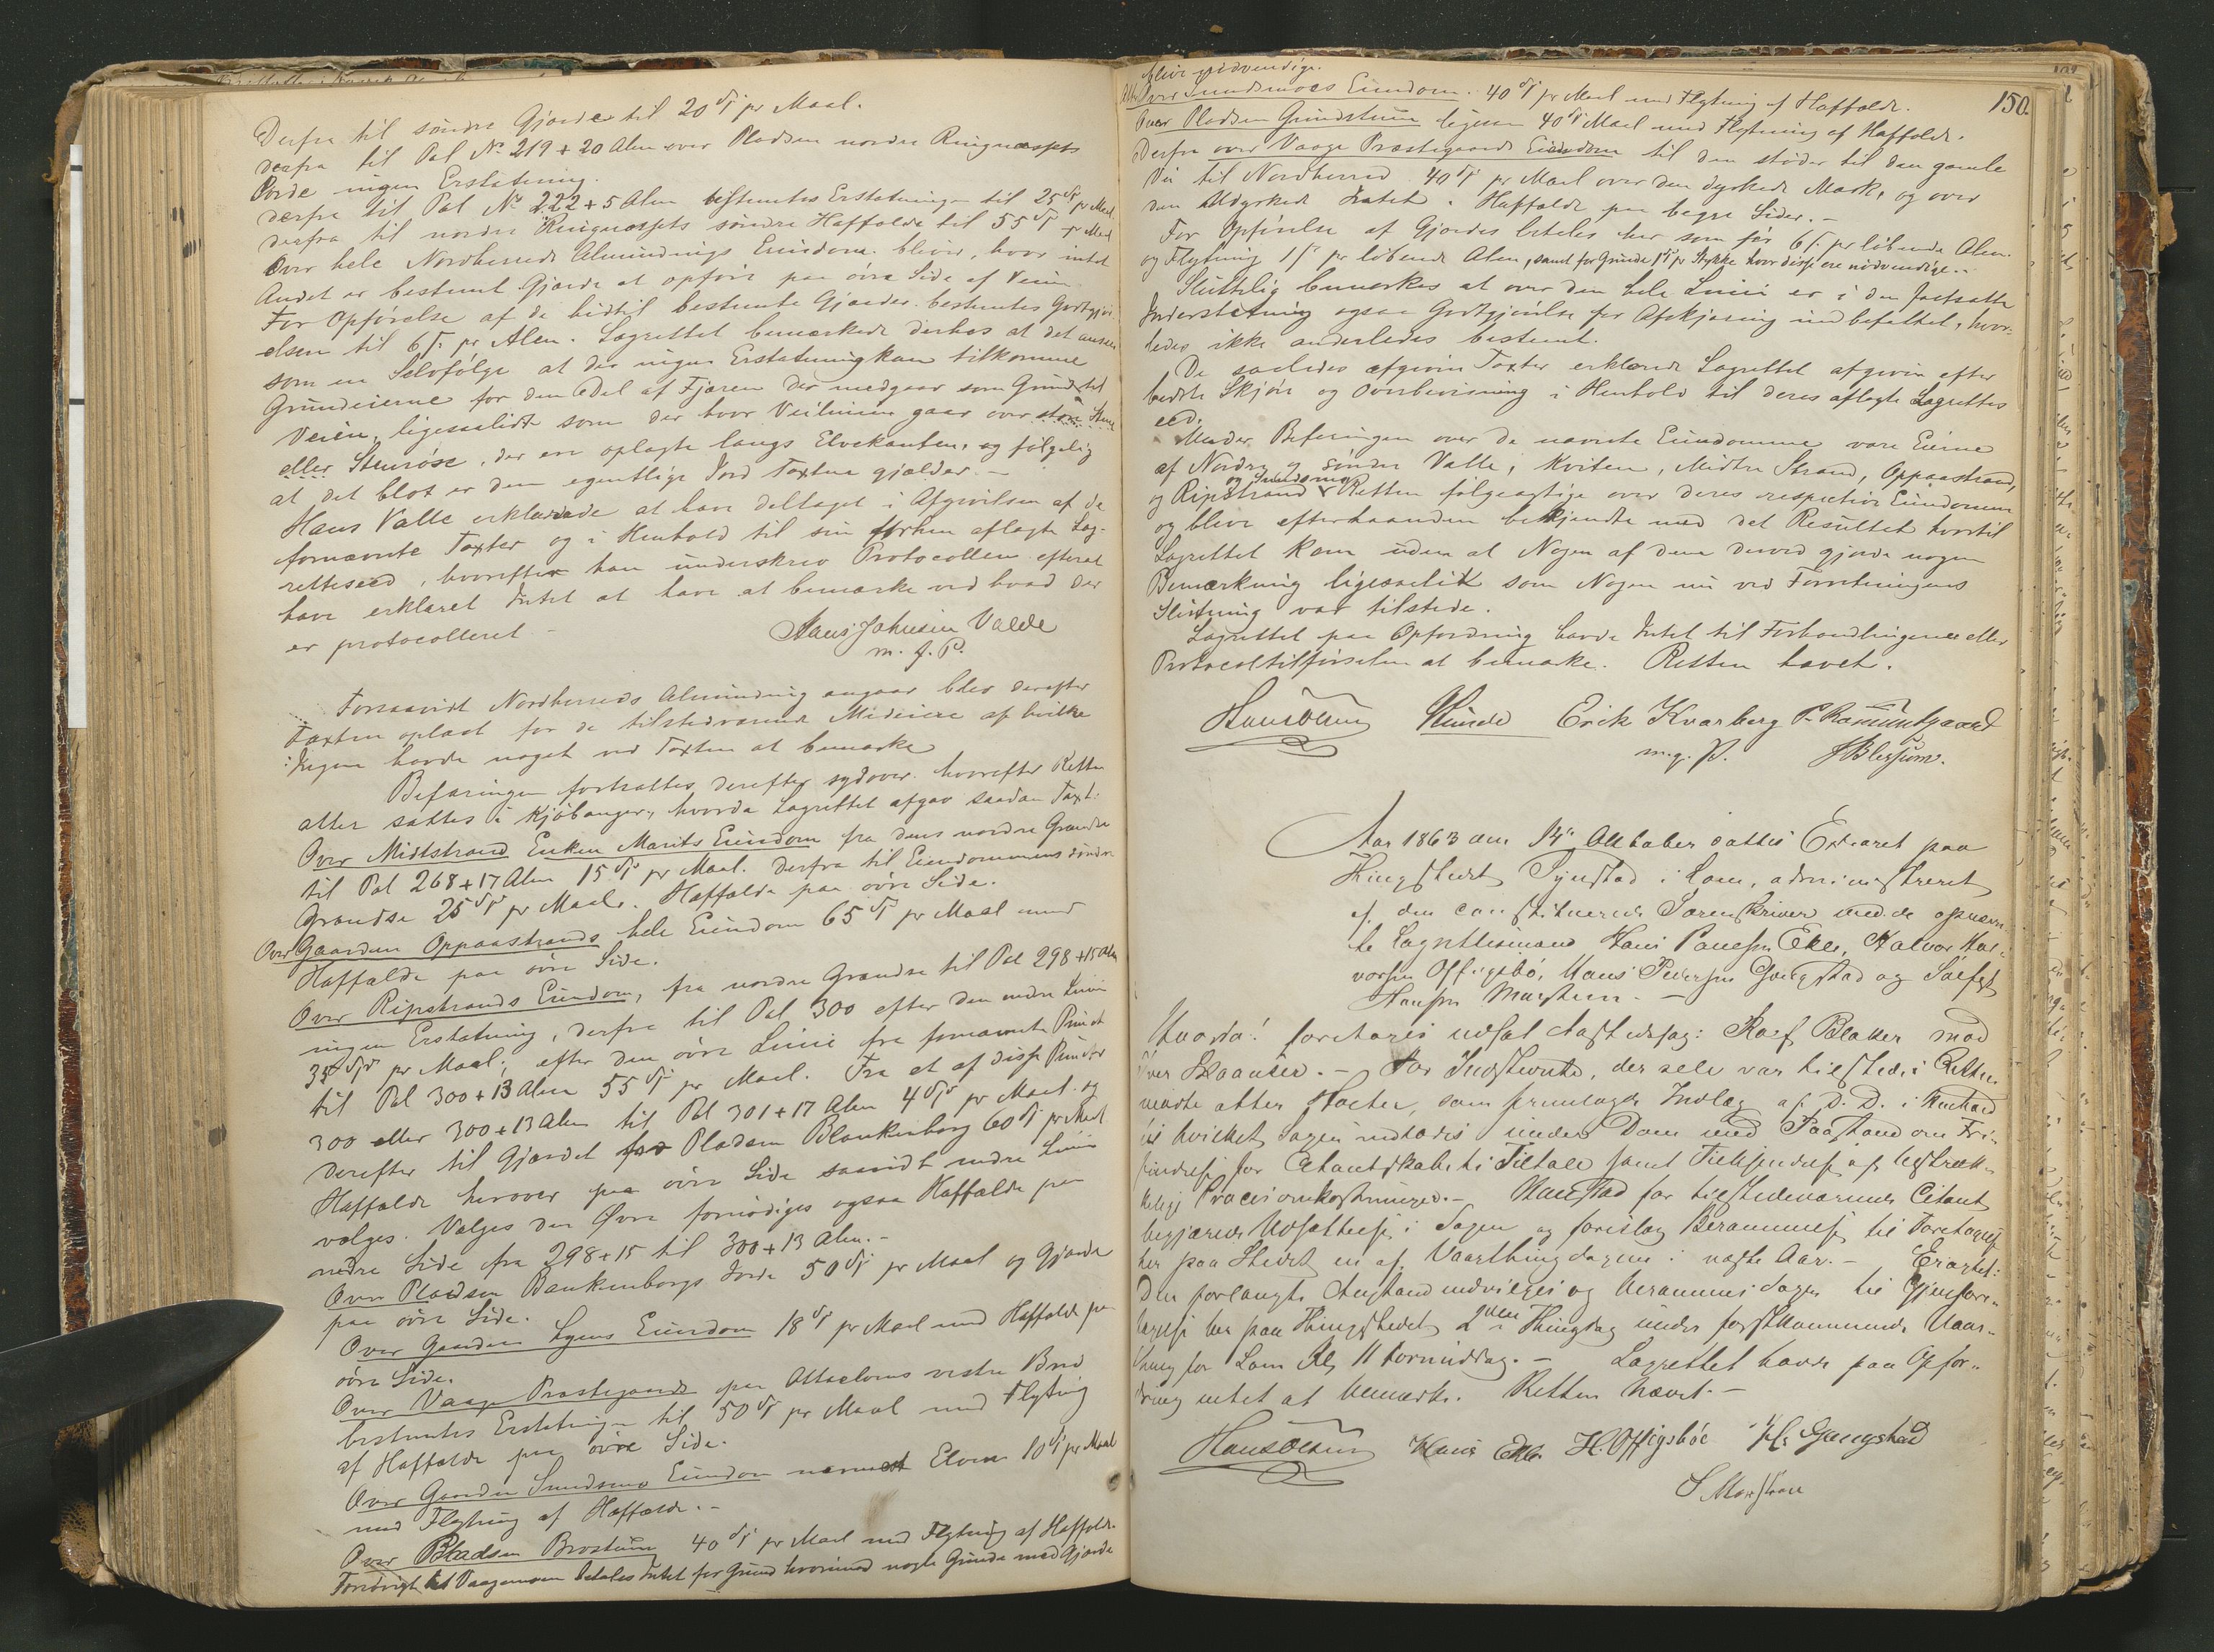 Derfra til søndre Gjærde til 20 Spd pr Maal.
derfra til Pæl No 219 + 20 Alen over Pladsen nordre Ringnæssets
Jorde ingen Erstatning.
derfra til Pæl No 222 + 5 Alen bestemtes Erstatningen til 25 Spd pr Maal
derfra til nordre Ringnæssets søndre Haffælde til 55 Spd pr Maal
Over hele Nordherreds Almindnings Eiendom bliver, hvor intet
Andet er bestemt Gjærde at opføre paa øvre Side af Veien.
For Opførelse af de hidtil bestemte Gjærder bestemtes Godtgjør-
elsen til 6 s. pr Alen. Lagrettet bemærkede derhos at det ansees
som en Selvfølge at der ingen Erstatning kan tilkomme
Grundeierne for den Del af Fjæren der medgaar som Grund til
Veien, ligesaalidt som der hvor Veilinien gaar over store Stene
eller Stenrøse, der ere oplagte langs Elvekanten, og følgelig
at det blot er den egentlige Jord Taxten gjælder.—
Hans Valle erklærede at have deltaget i Afgivelsen af de
fornævnte Taxter og i Henhold til sin forhen aflagte Lag-
retteseed, hvorefter han underskrev Protocollen efterat
have erklæret Intet at have at bemærke ved hvad der
er protocolleret —
Hans Johnsen Valde
m. f. P.
Forsaavidt Nordherreds Almindning angaar blev derefter
Taxten oplæst for de tilstedeværende Medeiere af hvilke
Ingen havde noget ved Taxten at bemærke
Befaringen fortsattes derefter sydover hvorefter Retten
atter sattes i Kjøbanger, hvorda Lagrettet afgav saadan Taxt:
Over Midtstrand Enken Marits Eiendom fra dens nordre Grændse
til Pæl 268 + 17 Alen 15 Spd pr Maal. derfra til Eiendommens søndre
Grændse 25 Spd pr Maal. Haffælde paa øvre Side.
Over Gaarden Oppaastrands hele Eiendom 65 Spd pr Maal med
Haffælde paa øvre Side.
Over Ripstrands Eiendom, fra nordre Grændse til Pæl 298 + 15 Alen
ingen Erstatning, derfra til Pæl 300 efter den nedre Linie
35 Spd pr Maal, efter den øvre Linie fra fornævnte Punct
til Pæl 300 + 13 Alen 55 Spd pr Maal. Fra et af disse Puncter
300 eller 300 + 13 Alen til Pæl 301 + 17 Alen 4 Spd pr Maal og
derefter til Gjærdet for Pladsen Blankenborg 60 Spd pr Maal
Haffælde herover paa øvre Side saavidt nedre Linie
vælges. Vælges den Øvre fornødiges ogsaa Haffælde paa
nedre Side fra 298 + 15 til 300 + 13 Alen.—
Over Pladsen Bankenborgs Jorde 50 Spd pr Maal og Gjærde
paa øvre Side.
Over Gaarden Sygens Eiendom 18 Spd pr Maal med Haffælde paa
øvre Side.
Over Vaage Præstegaards paa Ottaelvens vestre Bred
bestemtes Erstatningen til 50 Spd pr Maal med Flytning
af Haffælde paa øvre Side.
Over Gaarden Sundsmo Eiendom nærmest Elven 10 Spd pr Maal
med Flytning af Haffælde.—
Over Pladsen Brostuen 40 Spd pr Maal med Flytning af Haffælde.
Forøvrigt betales Intet for Grund hvorimod nogle Grinde med Gjærde
150.
blive nødvendige.
Over Sundsmoes Eiendom. 40 Spd pr Maal med Flytning af Haffælde.
Over Pladsen Grindstuen ligesaa 40 Spd Maal med Flytning af Haffælde.
Derfra over Vaage Præstegaards Eiendom til den støder til den gamle
Vei til Nordherred 40 Spd pr Maal over den dyrkede Mark, og over
den Udyrkede Intet. Haffælde paa begge Sider.—
For Opførelse af Gjærdes betales her som før 6 s. pr løbende Alen
og Flytning 1 s pr løbende Alen, samt for Grinde 1 Spd pr Stykke hvor disse ere nødvendige.—
Sluttelig bemærkes at over den hele Linie er i den fastsatte
Inderstatning ogsaa Godtgjørelse for Afskjæring indbefattet, hvor-
ledes ikke anderledes bestemt.
De saaledes afgivne Taxter erklærede Lagrettet afgivne efter
bedste Skjøn og Overbevisning i Henhold til deres aflagte Lagrettes
eed.
Under Befaringen over de nævnte Eiendomme vare Eierne
af Nordre og Søndre Valle, Kviten, Midtre Strand, Oppaastrand,
og Sundsmo
og Ripstrand Retten følgeagtige over deres respective Eiendomme
og bleve efterhaanden bekjendte med det Resultet hvortil
Lagrettet kom uden at Nogen af dem derved gjorde nogen
Bemærkning ligesaalidt som Nogen nu ved Forretningens
Slutning var tilstede.
Lagrettet paa Opfordring havde Intet til Forhandlingerne eller
Protocoltilførselen at bemærke. Retten hævet.
Erik Kvarberg
m. p. P.
J Blessom.
Aar 1863 den 14 Oktober sattes Extraret paa
Thingstedet Synstad i Lom, administreret
af den constituerede Sorenskriver med de opnævn-
te Lagrettesmænd Hans Paulsen Eke, Halvor Hal-
vorsen Offigsbø, Hans Pedersen Gjengstad og Solfest
Hansen Marstein.—
Hvorda! foretages udsat Aastedssag: Rolf Blakar mod
Iver Skaanser.— For Indstevnte, der selv var tilstede i Retten
mødte atter Holter, som fremlagde Indlæg af D. D. i Henhold
til hvilket Sagen indlodes under Dom med Paastand om Fri-
findelse for Citantskabets Tiltale samt Tilkjendelse af tilstræk-
kelige Procesomkostninger.— Hanstad for tilstedeværende Citant
begjærede Udsættelse i Sagen og foreslog Berammelse til Foretagelse
her paa Stedet en af Vaarthingdagene i næste Aar.— Eragtet:
Den forlangte Anstand indvilges og berammes Sagen til Gjenfore-
tagelse her paa Thingstedet 2den Thingdag under førstkommende Vaar-
thing for Lom Kl. 11 Formiddag.— Lagrettet havde paa Opfor-
dring intet at bemærke. Retten hævet.—
Hans Eke. H. Offigsbøe
S. Marstein